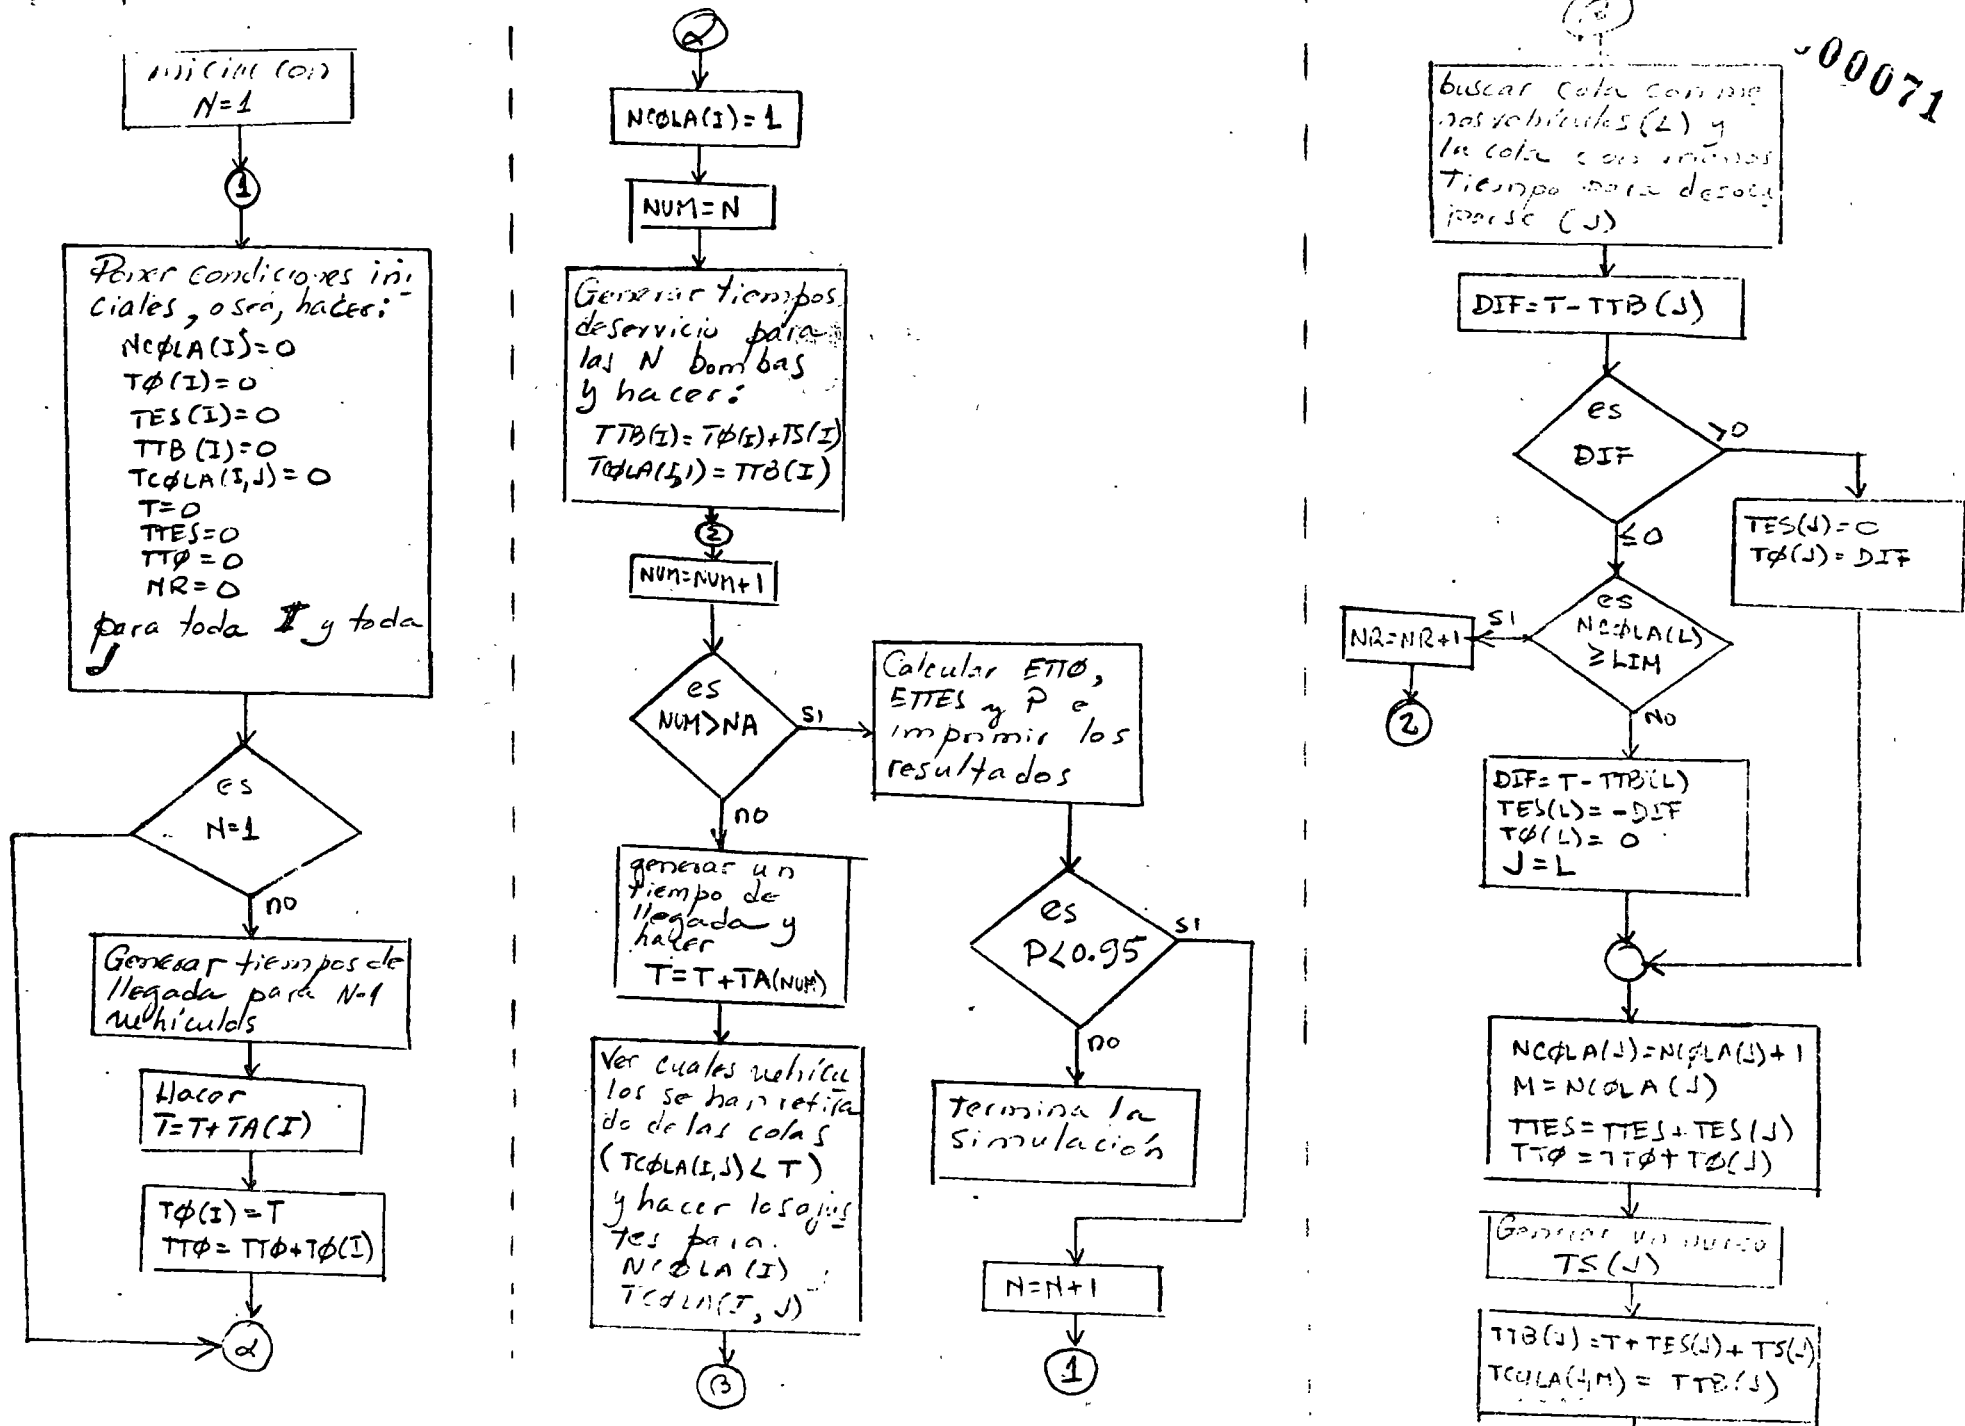 iniciar con
N=1
1
Poner condiciones ini
ciales, o sea, hacer:
NCØLA(I)=0
TØ(I)=0
TES(I)=0
TTB(I)=0
TCØLA(I,J)=0
T=0
TTES=0
TTØ=0
NR=0
para toda I y toda
J
es
N=1
no
Generar tiempos de
llegada para N-1
vehículos
Hacer
T=T+TA(I)
TØ(I)=T
TTØ=TTØ+TØ(I)
α
α
NCØLA(I)=1
NUM=N
Generar tiempos
de servicio para
las N bombas
y hacer:
TTB(I)=TØ(I)+TS(I)
TCØLA(I,1)=TTB(I)
2
NUM=NUM+1
es
NUM>NA
SI
no
Calcular ETTØ,
ETTES y P e
imprimir los
resultados
generar un
tiempo de
llegada y
hacer
T=T+TA(NUM)
es
P<0.95
SI
no
Ver cuales vehícu
los se han retira
do de las colas
(TCØLA(I,J)<T)
y hacer los ajus
tes para
NCØLA(I)
TCØLA(I,J)
β
termina la
simulación
N=N+1
1
00071
buscar cola con me
nos vehículos (L) y
la cola con menos
tiempo para desocu
parse (J)
DIF=T-TTB(J)
es
DIF
>0
≤0
TES(J)=0
TØ(J)=DIF
es
NCØLA(L)
≥LIM
SI
NR=NR+1
2
NO
DIF=T-TTB(L)
TES(L)=-DIF
TØ(L)=0
J=L
NCØLA(J)=NCØLA(J)+1
M=NCØLA(J)
TTES=TTES+TES(J)
TTØ=TTØ+TØ(J)
Generar un nuevo
TS(J)
TTB(J)=T+TES(J)+TS(J)
TCØLA(J,M)=TTB(J)